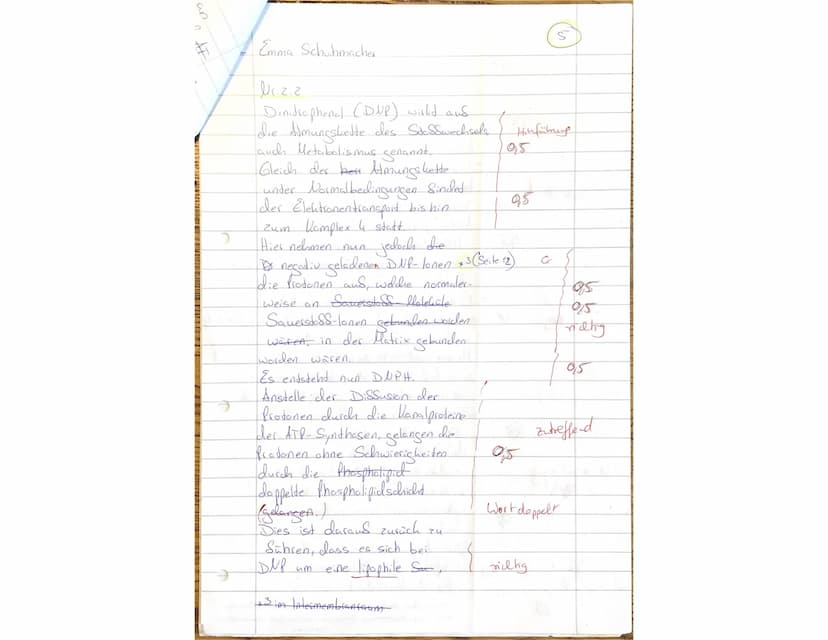 5
Emma Schuhmacher
Nr. 2.2
Dinitrophenol (DNP) wirkt auf
die Atmungskette des Stoffwechsels Hinführung
auch Metabolismus genannt. 0,5
Gleich der Atmungskette
unter Normalbedingungen findet 0,5
der Elektronentransport bis hin
zum Komplex 4 statt.
Hier nehmen nun jedoch die
negativ geladenen DNP-Ionen *3 (Seite 12)
die Protonen auf, welche normaler- 0,5
weise an Sauerstoff-Moleküle 0,5
Sauerstoff-Ionen gebunden worden richtig
wären, in der Matrix gebunden
worden wären.
Es entsteht nun DNPH. 0,5
Anstelle der Diffusion der
Protonen durch die Kanalproteine
der ATP-Synthasen, gelangen die zutreffend
Protonen ohne Schwierigkeiten 0,5
durch die Phospholipid
doppelte Phospholipidschicht
(gelangen.) Wort doppelt
Dies ist darauf zurück zu
führen, dass es sich bei
DNP um eine lipophile , richtig
*3 im Intermembranraum